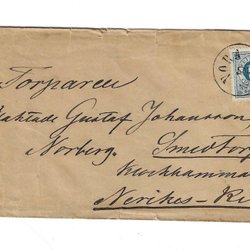 Torparen
Aktade Gustaf Johansson
Norberg. Smedtorp
Nerikes-Ki